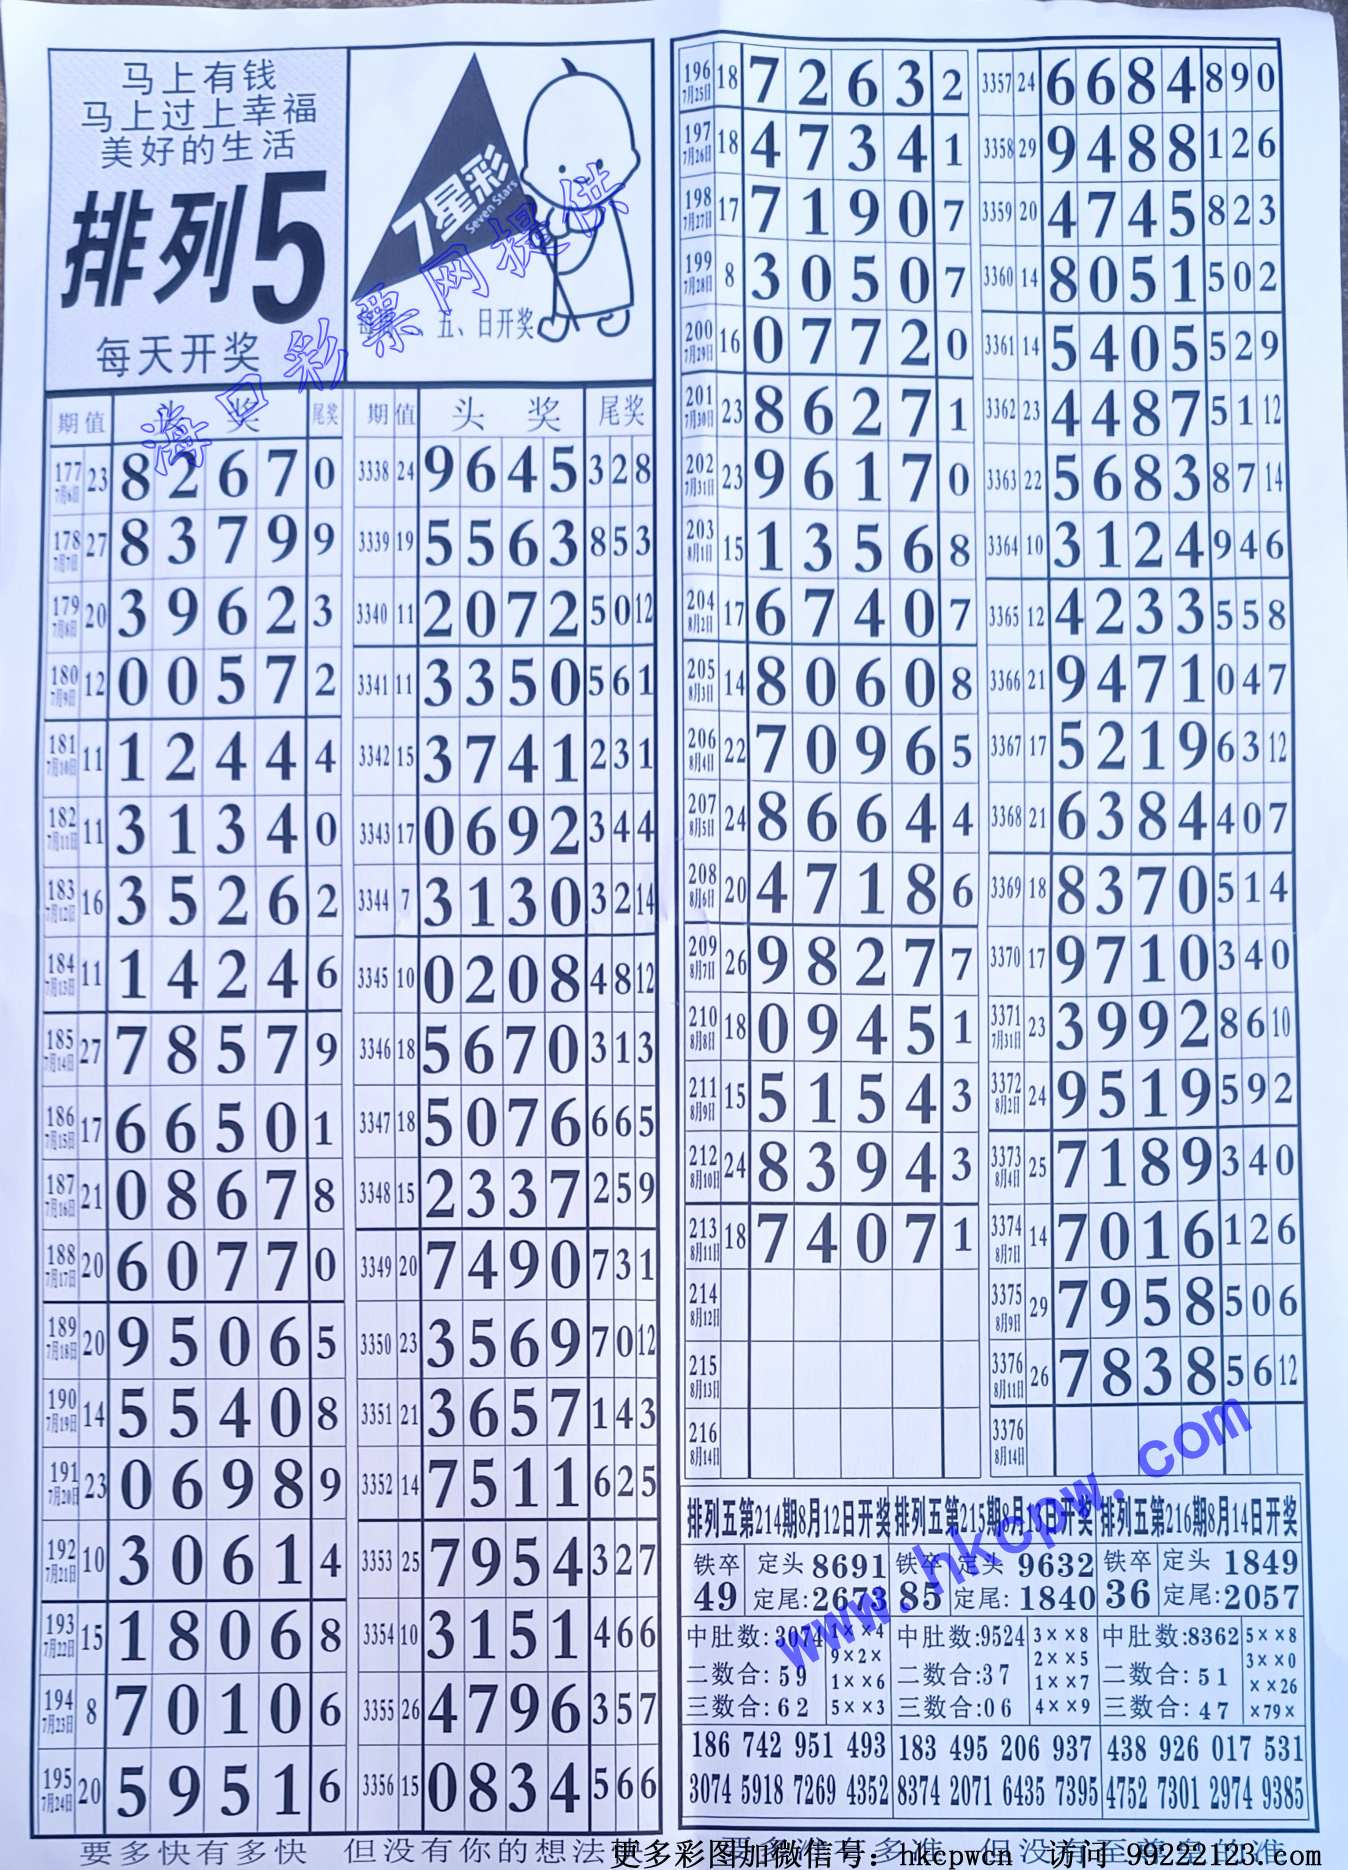 马上有钱
马上过上幸福
美好的生活
排列5
每天开奖
7星彩
Seven Stars
五、日开奖
海口彩票网提供
期 值 头 奖 尾奖
177 7月6日 23 8 2 6 7 0
178 7月7日 27 8 3 7 9 9
179 7月8日 20 3 9 6 2 3
180 7月9日 12 0 0 5 7 2
181 7月10日 11 1 2 4 4 4
182 7月11日 11 3 1 3 4 0
183 7月12日 16 3 5 2 6 2
184 7月13日 11 1 4 2 4 6
185 7月14日 27 7 8 5 7 9
186 7月15日 17 6 6 5 0 1
187 7月16日 21 0 8 6 7 8
188 7月17日 20 6 0 7 7 0
189 7月18日 20 9 5 0 6 5
190 7月19日 14 5 5 4 0 8
191 7月20日 23 0 6 9 8 9
192 7月21日 10 3 0 6 1 4
193 7月22日 15 1 8 0 6 8
194 7月23日 8 7 0 1 0 6
195 7月24日 20 5 9 5 1 6
期 值 头 奖 尾奖
3338 24 9 6 4 5 3 2 8
3339 19 5 5 6 3 8 5 3
3340 11 2 0 7 2 5 0 12
3341 11 3 3 5 0 5 6 1
3342 15 3 7 4 1 2 3 1
3343 17 0 6 9 2 3 4 4
3344 7 3 1 3 0 3 2 14
3345 10 0 2 0 8 4 8 12
3346 18 5 6 7 0 3 1 3
3347 18 5 0 7 6 6 6 5
3348 15 2 3 3 7 2 5 9
3349 20 7 4 9 0 7 3 1
3350 23 3 5 6 9 7 0 12
3351 21 3 6 5 7 1 4 3
3352 14 7 5 1 1 6 2 5
3353 25 7 9 5 4 3 2 7
3354 10 3 1 5 1 4 6 6
3355 26 4 7 9 6 3 5 7
3356 15 0 8 3 4 5 6 6
196 7月25日 18 7 2 6 3 2
197 7月26日 18 4 7 3 4 1
198 7月27日 17 7 1 9 0 7
199 7月28日 8 3 0 5 0 7
200 7月29日 16 0 7 7 2 0
201 7月30日 23 8 6 2 7 1
202 7月31日 23 9 6 1 7 0
203 8月1日 15 1 3 5 6 8
204 8月2日 17 6 7 4 0 7
205 8月3日 14 8 0 6 0 8
206 8月4日 22 7 0 9 6 5
207 8月5日 24 8 6 6 4 4
208 8月6日 20 4 7 1 8 6
209 8月7日 26 9 8 2 7 7
210 8月8日 18 0 9 4 5 1
211 8月9日 15 5 1 5 4 3
212 8月10日 24 8 3 9 4 3
213 8月11日 18 7 4 0 7 1
214 8月12日
215 8月13日
216 8月14日
3357 24 6 6 8 4 8 9 0
3358 29 9 4 8 8 1 2 6
3359 20 4 7 4 5 8 2 3
3360 14 8 0 5 1 5 0 2
3361 14 5 4 0 5 5 2 9
3362 23 4 4 8 7 5 1 12
3363 22 5 6 8 3 8 7 14
3364 10 3 1 2 4 9 4 6
3365 12 4 2 3 3 5 5 8
3366 21 9 4 7 1 0 4 7
3367 17 5 2 1 9 6 3 12
3368 21 6 3 8 4 4 0 7
3369 18 8 3 7 0 5 1 4
3370 17 9 7 1 0 3 4 0
3371 7月31日 23 3 9 9 2 8 6 10
3372 8月2日 24 9 5 1 9 5 9 2
3373 8月4日 25 7 1 8 9 3 4 0
3374 8月7日 14 7 0 1 6 1 2 6
3375 8月9日 29 7 9 5 8 5 0 6
3376 8月11日 26 7 8 3 8 5 6 12
3376 8月14日
排列五第214期8月12日开奖
铁卒 49 定头 8691
定尾:2673
中肚数:3074
二数合:59
三数合:62
1××4
9×2×
1××6
5××3
186 742 951 493
3074 5918 7269 4352
排列五第215期8月13日开奖
铁卒 85 定头 9632
定尾:1840
中肚数:9524
二数合:37
三数合:06
3××8
2××5
1××7
4××9
183 495 206 937
8374 2071 6435 7395
排列五第216期8月14日开奖
铁卒 36 定头 1849
定尾:2057
中肚数:8362
二数合:51
三数合:47
5××8
3××0
××26
×79×
438 926 017 531
4752 7301 2974 9385
www.hkcpw.com
要多快有多快 但没有你的想法
更多彩图加微信号：hkcpwcn 访问 99222123.com